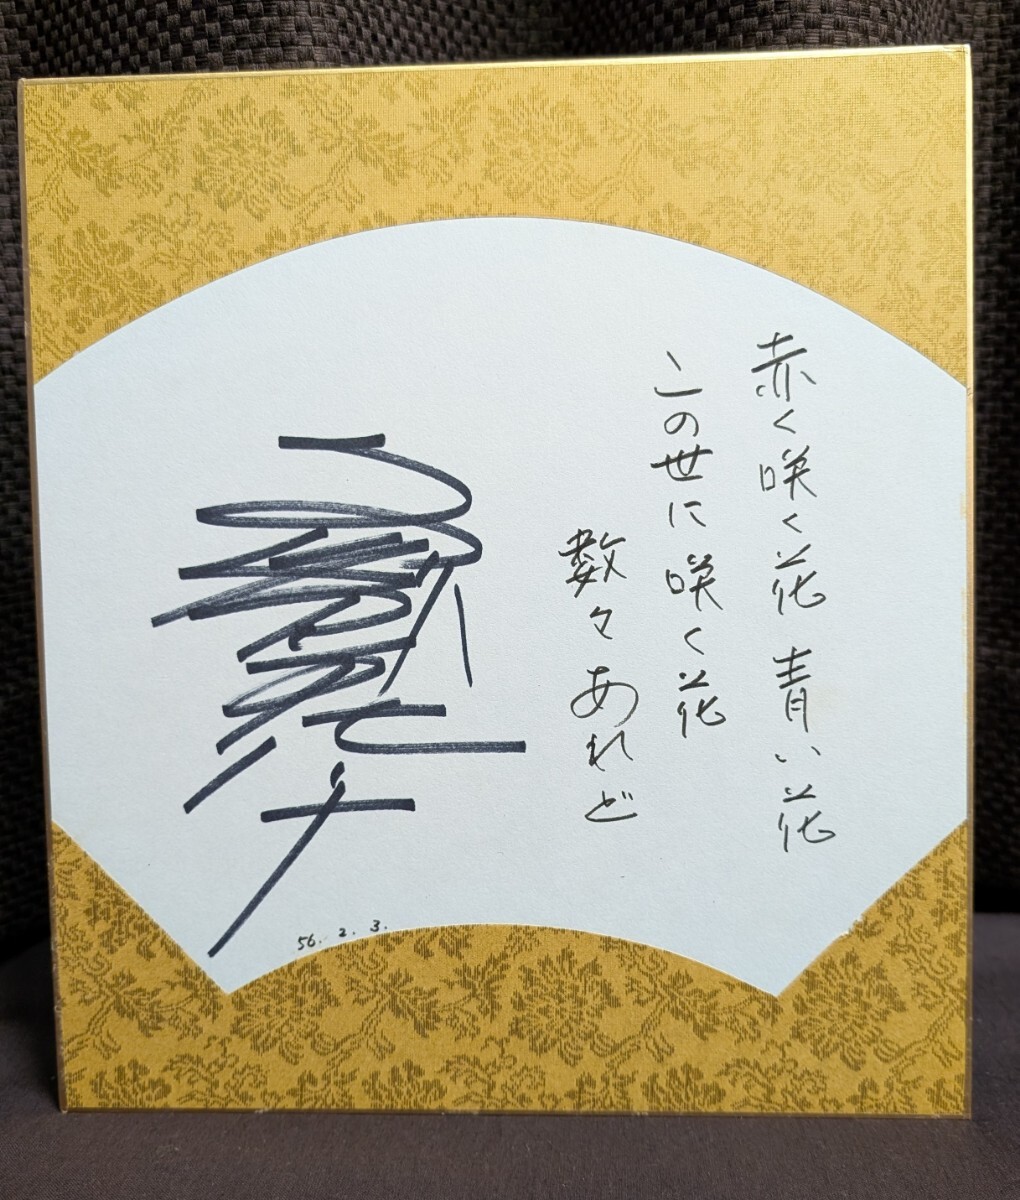 赤く咲く花 青い花
この世に咲く花
数々あれど
56. 2. 3.